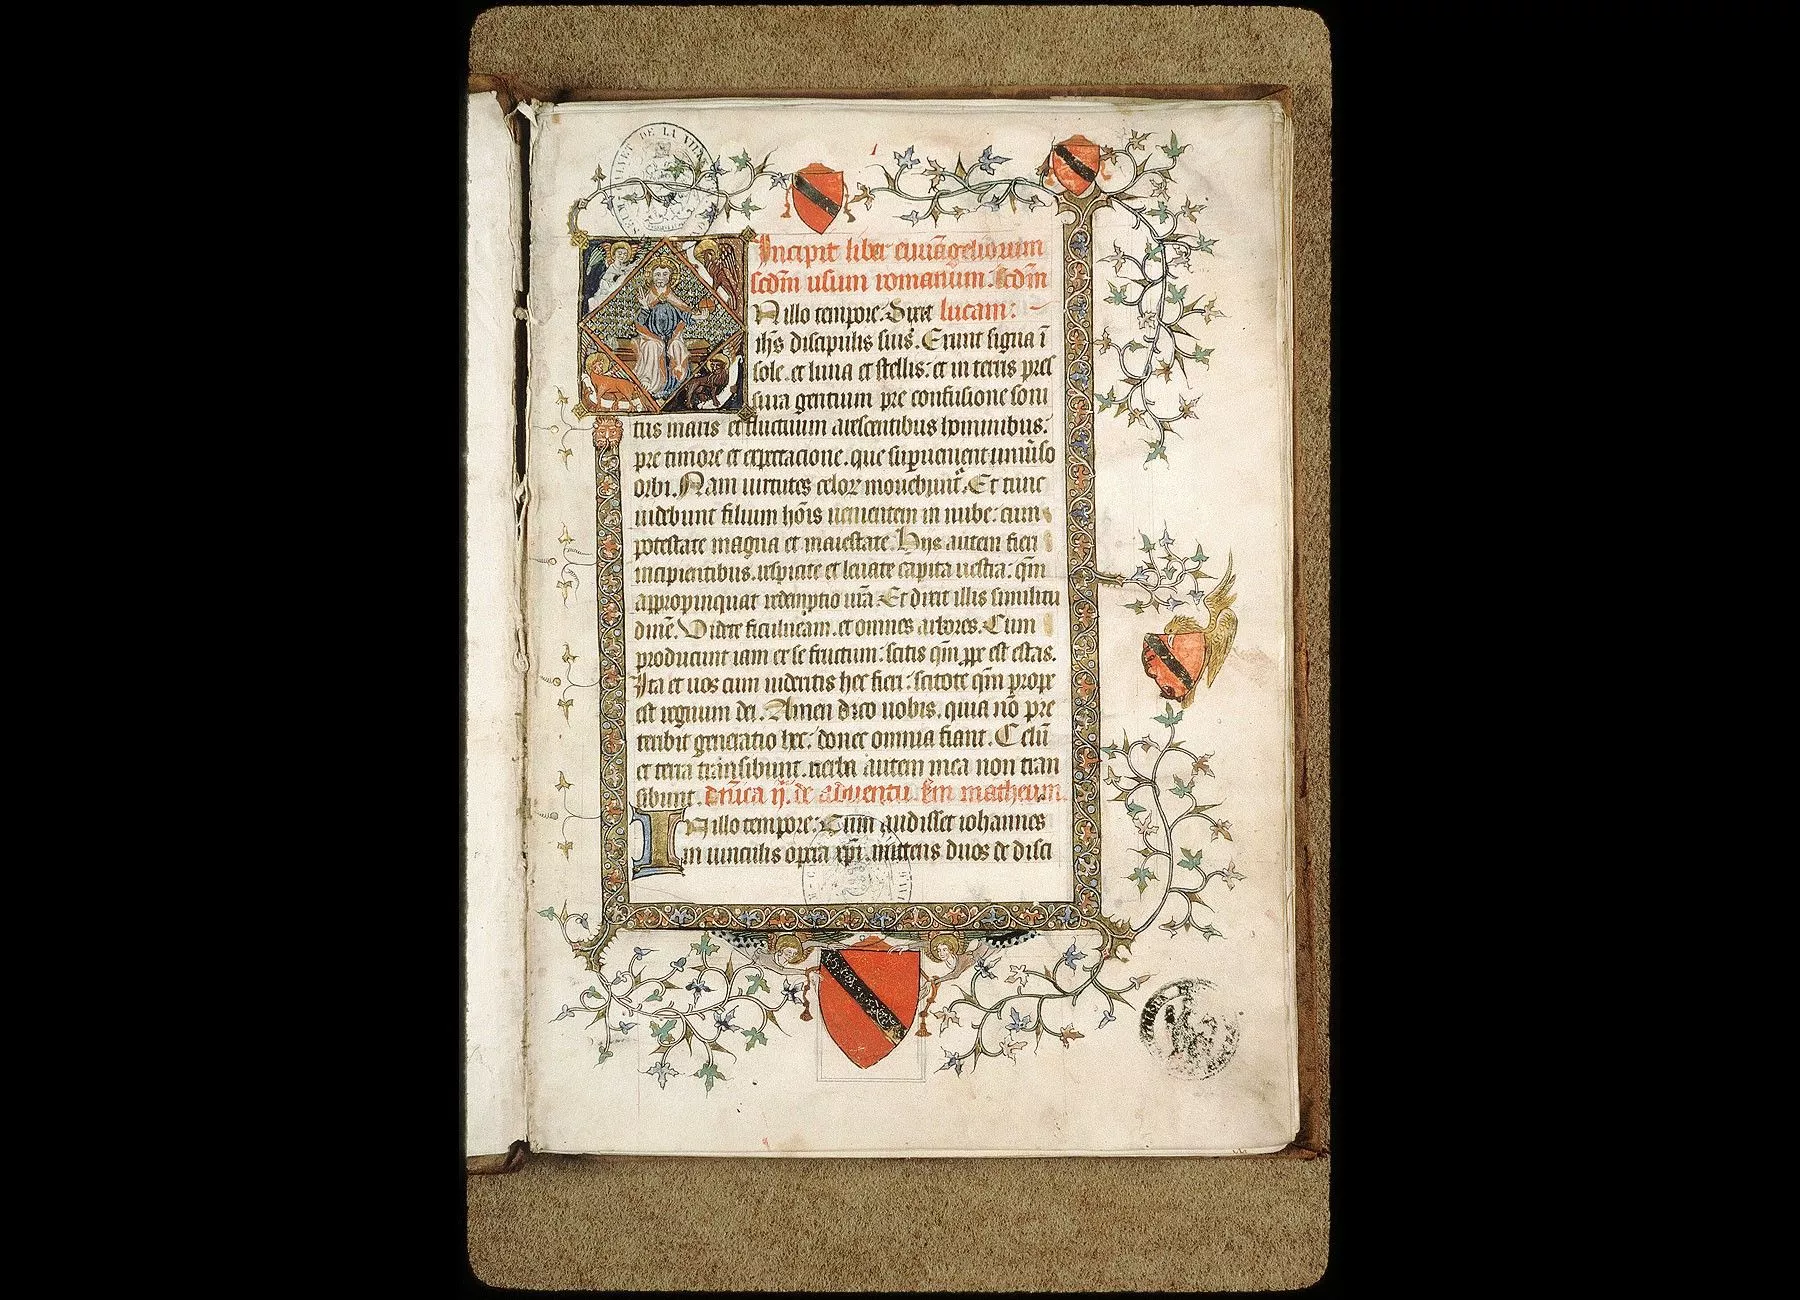 1
Incipit liber euuãgeliorum
scdm̃ usum romanum. Scdm̃
N illo tempore. Dixit lucam:
ihs̃ discipulis suis. Erunt signa ĩ
sole. et luna et stellis: et in terris pres
sura gentium pre confusione soni
tus maris et fluctuum arescentibus hominibus:
pre timore et expectacione. que superuenient uniuẽso
orbi. Nam uirtutes celoꝝ mouebunt̃. Et tunc
uidebunt filium hõis uenientem in nube: cum
potestate magna et maiestate. Hys autem fieri
incipientibus. respicite et leuate capita uestra: qm̃
appropinquat redemptio ur̃a. Et dixit illis similitu
dinẽ. Videte ficulneam. et omnes arbores. Cum
producunt iam ex se fructum: scitis qm̃ ꝓpe est estas.
Ita et uos cum uideritis hec fieri: scitote qm̃ prope
est regnum dei. Amen dico uobis. quia nõ pre
teribit generatio hec: donec omnia fiant. Celũ
et terra transibunt. uerba autem mea non tran
sibunt. Dñica ij. de aduentu. sm̃ matheum.
IN illo tempore: Cum audisset iohannes
in uinculis opera xp̃i. mittens duos de disci
DE LA VILLE